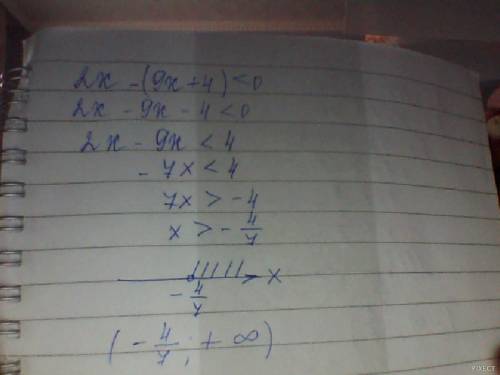 2x - (9x + 4) < 0
2x - 9x - 4 < 0
2x - 9x < 4
- 7x < 4
7x > - 4
x > - 4/7
x
- 4/7
(- 4/7 ; + ∞)
PIXECT